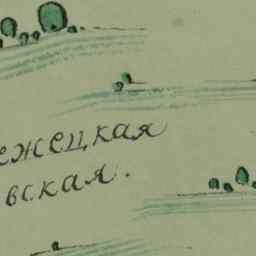 ежецкая
вская.